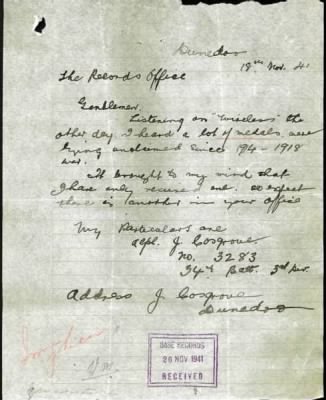 Dunedoo
18th Nov. 41
The Records Office
Gentlemen.
Listening on "wireless" the
other day I heard a lot of medals were
lying unclaimed since 1914-1918
war.
It brought to my mind that
I have only received one. so expect
there is another in your office
My Particulars are
J. Cosgrove.
No. 3283
34th Batt. 3rd
Address J Cosgrove
Dunedoo
BASE RECORDS
20 NOV 1941
RECEIVED